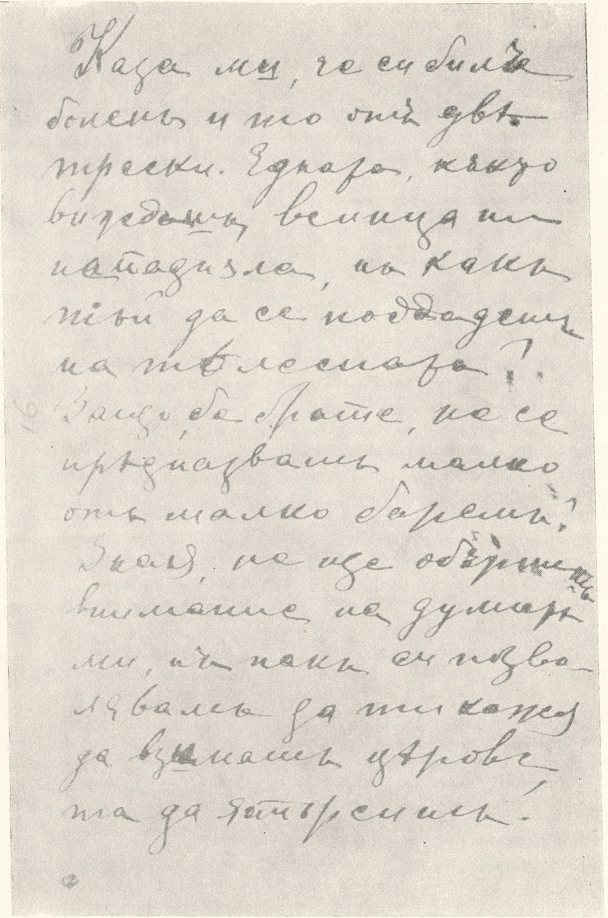 Каза ми, че си билъ
боленъ и то отъ двѣ
трески. Едната, както
виждашъ, всички ни
нападнала, нъ какъ
тъй да се поддадешъ
на тѣлесната?
Защо, бе брате, не се
прѣдпазвашъ малко
отъ малко баремъ?
Зная, не ще обърнешъ
внимание на думитѣ
ми, нъ пакъ си позво-
лявамъ да ти кажѫ
да взимашъ цѣрове
та да